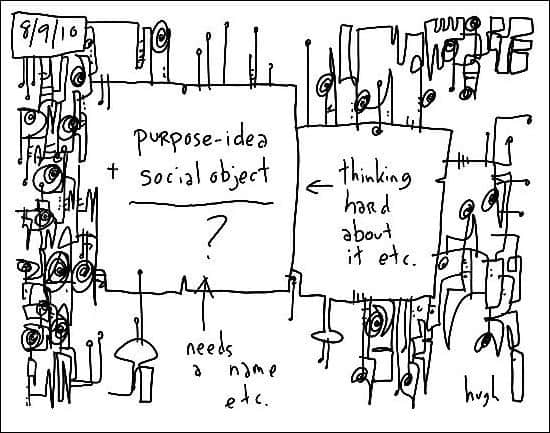 8/9/10
purpose-idea
+ social object
?
← thinking
hard
about
it etc.
needs
a name
etc.
hugh